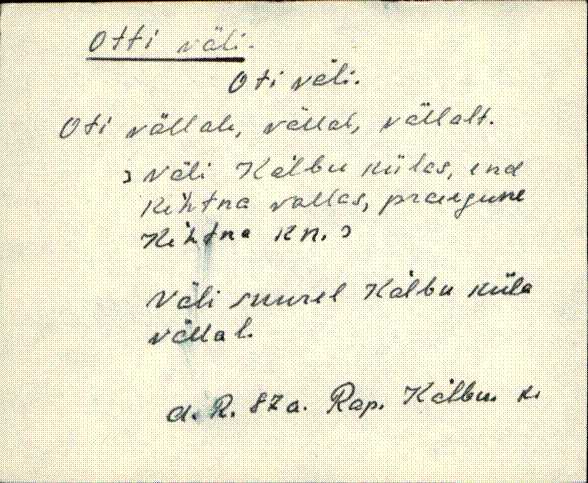 Otti väli.
Oti väli.
Oti vällale, vällal, vällalt.
Väli Kälbu külas, end
Kehtna vallas, praegune
Kehtna kn.
Väli suurel Kälbu küla
vällal.
d. R. 87a. Rap. Kälbu k.